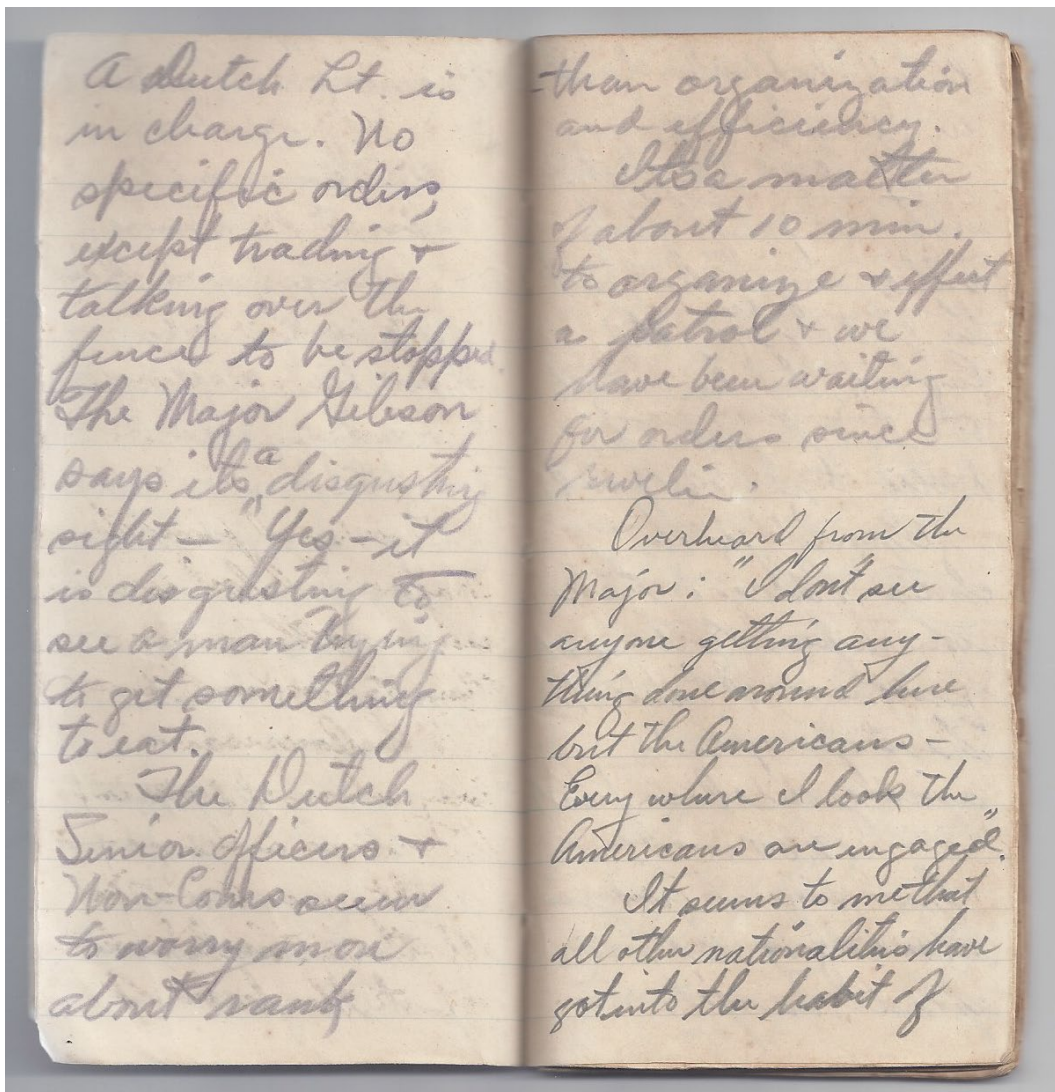 A Dutch Lt. is
in charge. No
specific orders,
except trading +
talking over the
fence to be stopped.
The Major Gibson
says its a disgusting
sight — "Yes – it
is disgusting to
see a man trying
to get something
to eat.
The Dutch
Senior Officers +
Non-Coms seem
to worry more
about rank
than organization
and efficiency.
Its a matter
of about 10 min.
to organize + effect
a patrol + we
have been waiting
for orders since
Overheard from the
Major: "I dont see
anyone getting any-
thing done around here
but the Americans –
Every where I look the
Americans are engaged".
It seems to me that
all other nationalities have
got into the habit of